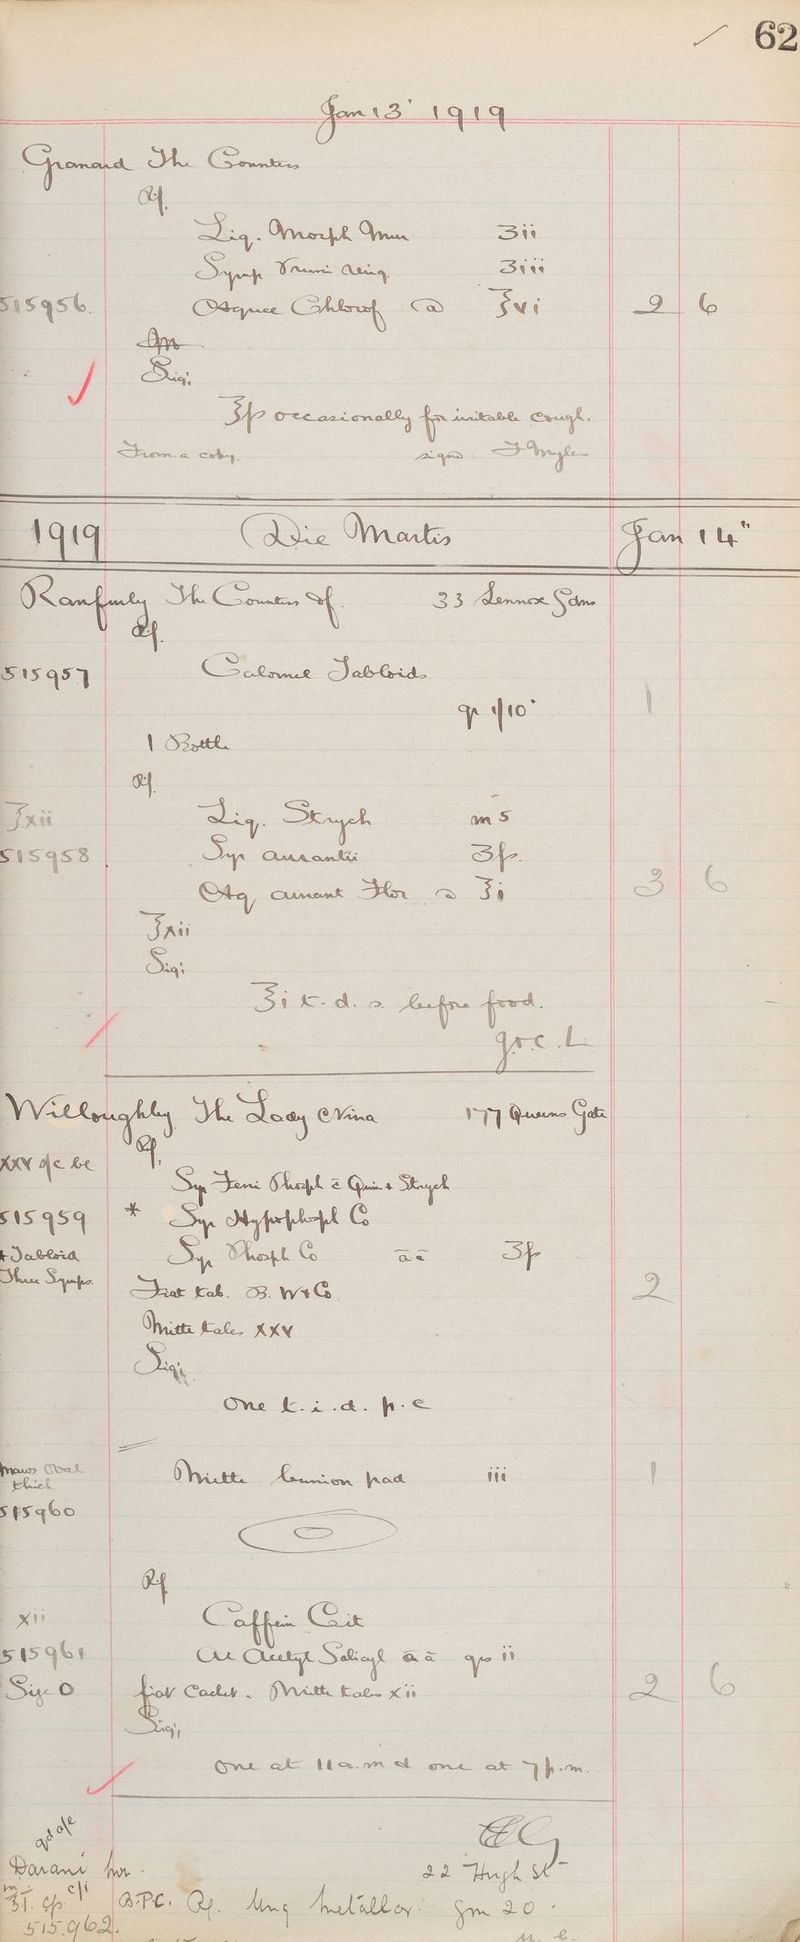 62
Jan 13 1919
Granard The Countess
Rf.
Liq. Morph Mur ʒii
Syrup Pruni Virg. ʒiii
515956. Aquae Chlorof @ ℥vi 2 6
Sig:
℥fs occasionally for irritable cough.
From a copy. signed F Myles
1919 Die Martis Jan 14"
Ranfurly The Countess of. 33 Lennox Gdns
Rf.
515957 Calomel Tabloids
gr 1/10 1
1 Bottle
Rf.
℥xii Liq. Strych m 5
515958 Syr aurantii ʒfs.
Aq aurant Flor @ ℥i 3 6
℥xii
Sig:
℥i t. d. s. before food.
Willoughby The Lady Nina 177 Queens Gate
Rf.
Syr Ferri Phosph c̄ Quin & Strych
515959 * Syr Hypophosph Co
* Tabloid Syr Phosph Co āā ʒfs
Three Syrups.
Fiat tab. B. W & Co. 2
Mitte tales XXV
Sig:
One t. i. d. p. c
Maws Oval
thick
Mitte bunion pad iii 1
515960
Rf
xii Caffein Cit
515961 Ac Acetyl Salicyl āā grs ii
Size 0 fiat cachet. Mitte tales xii 2 6
Sig:
One at 11 a.m & one at 7 p.m.
22 Hugh St
B.P.C. Rf. Ung Metallor. gm 20
515.962.